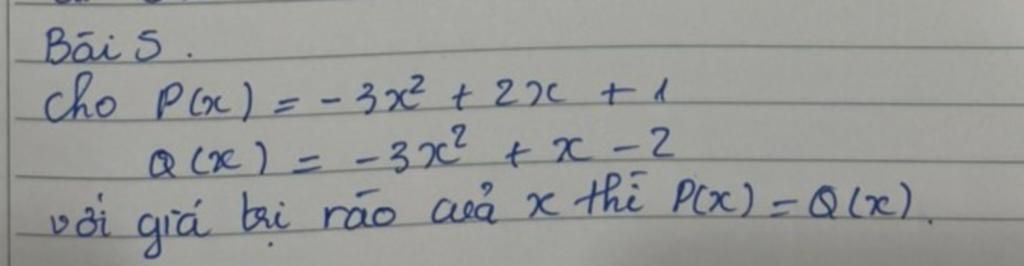 Bài 5.
Cho P(x) = -3x² + 2x + 1
Q(x) = -3x² + x - 2
với giá trị rào của x thì P(x) = Q(x).